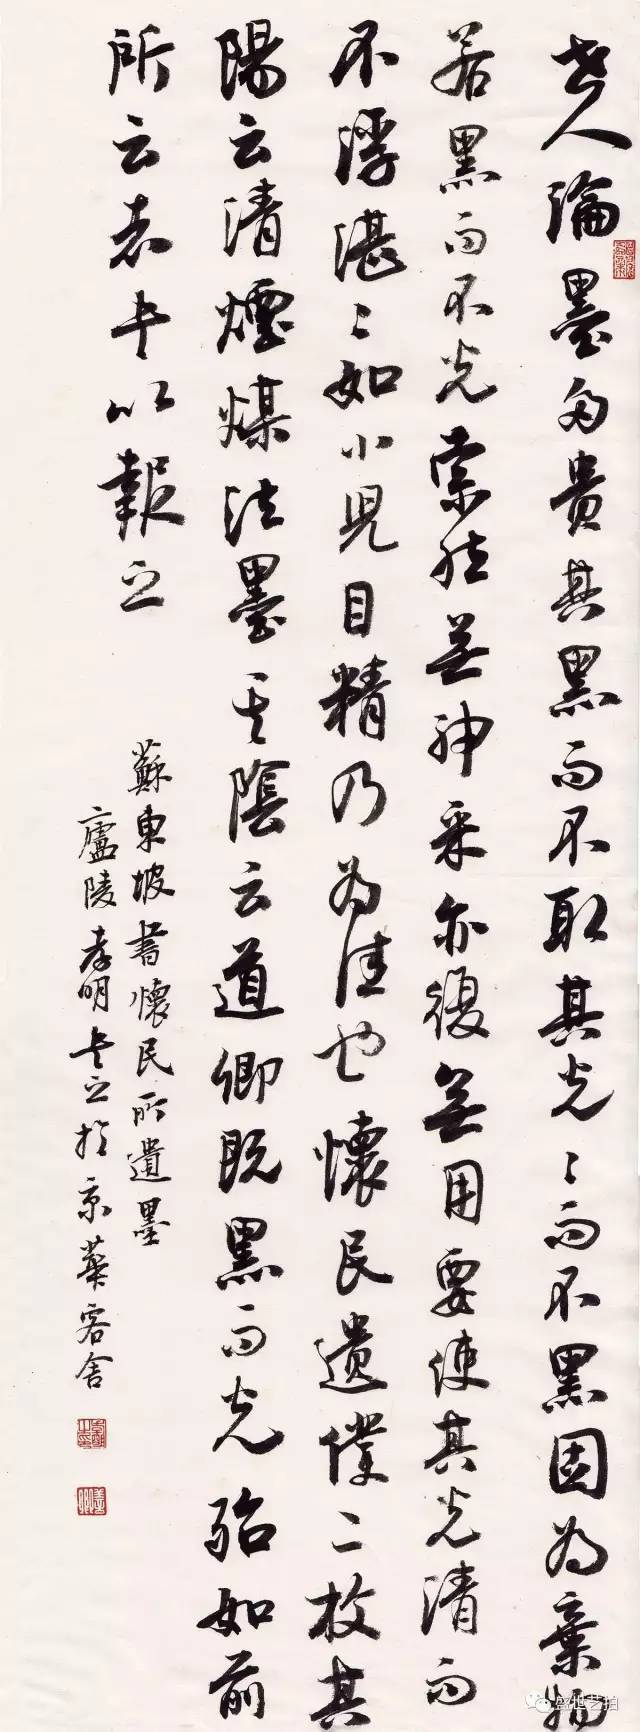 世人論墨多貴其黑而不取其光〻而不黑固為棄物
若黑而不光索然無神采亦復無用要使其光清而
不浮湛〻如小兒目精乃為佳也懷民遺僕二枚其
陽云清煙煤法墨其陰云道卿既黑而光殆如前
所云者書以報之
蘇東坡書懷民所遺墨
廬陵孝明書之於京華客舍
盛世艺拍